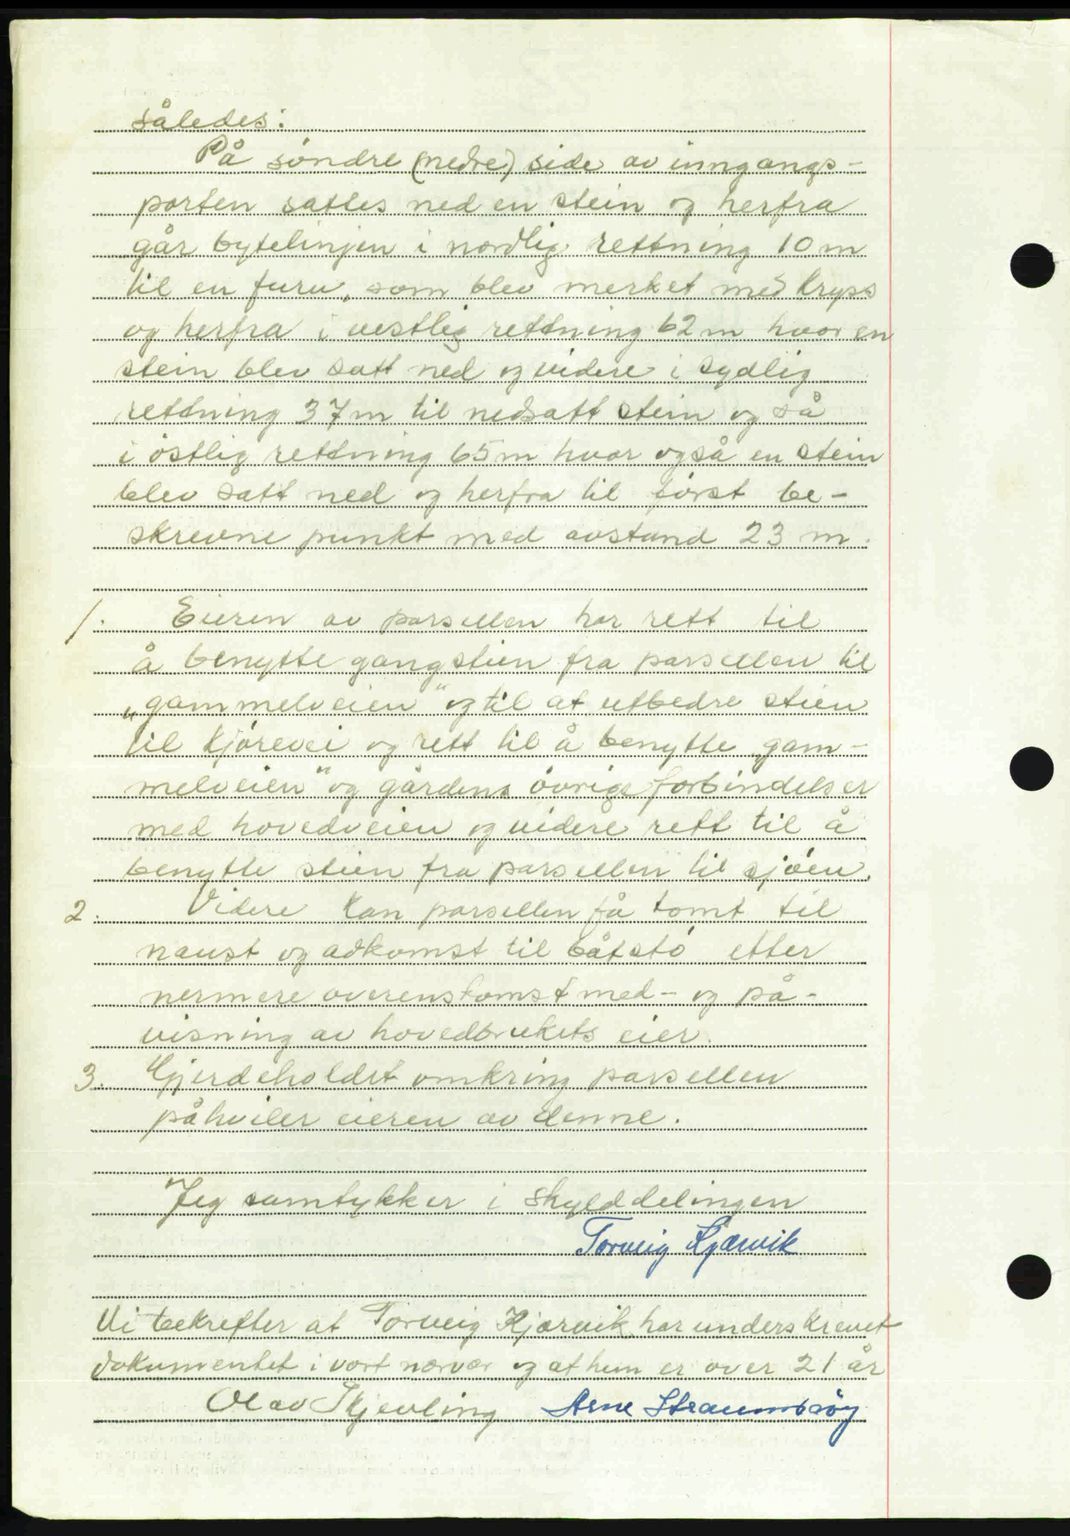 således:
På söndre (nedre) side av inngangs-
porten sattes ned en stein og herfra
går bytelinjen i nordlig rettning 10 m
til en furu, som blev merket med kryss
og herfra i vestlig rettning 62 m hvor en
stein blev satt ned og videre i sydlig
rettning 37 m til nedsatt stein og så
i östlig rettning 65 m hvor også en stein
blev satt ned og herfra til först be-
skrevne punkt med avstand 23 m.
1. Eieren av parsellen har rett til
å benytte gangstien fra parsellen til
„gammelveien" og til at utbedre stien
til kjörevei og rett til å benytte „gam-
melveien" og gårdens övrige forbindelser
med hovedveien og videre rett til å
benytte stien fra parsellen til sjöen.
2. Videre kan parsellen få tomt til
naust og adkomst til båtstö etter
nermere overenskomst med- og på-
visning av hovedbrukets eier.
3. Gjerdeholdet omkring parsellen
påhviler eieren av denne.
Jeg samtykker i skylddelingen
Torveig Kjærvik
Vi bekrefter at Torveig Kjærvik har underskrevet
dokumentet i vort nærvær og at hun er over 21 år
Olav Skjevling Arne Straumsöy